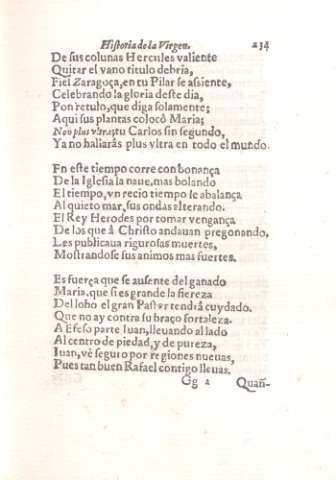 Historia de la Virgen. 234
De sus colunas Hercules valiente
Quitar el vano titulo debria,
Fiel Zaragoça, en tu Pilar se assiente,
Celebrando la gloria deste dia,
Pon retulo, que diga solamente;
Aqui sus plantas colocò Maria;
Non plus vltra, tu Carlos sin segundo,
Ya no hallarás plus vltra en todo el mundo.
En este tiempo corre con bonança
De la Iglesia la naue, mas bolando
El tiempo, vn recio tiempo se abalança
Al quieto mar, sus ondas alterando.
El Rey Herodes por tomar vengança
De los que à Christo andauan pregonando,
Les publicaua rigurosas muertes,
Mostrandose sus animos mas fuertes.
Es fuerça que se ausente del ganado
Maria, que si es grande la fiereza
Del lobo el gran Pastor tendrá cuydado.
Que no ay contra su braço fortaleza.
A Efeso parte Iuan, lleuando al lado
Al centro de piedad, y de pureza,
Iuan, vé seguro por regiones nueuas,
Pues tan buen Rafael contigo lleuas.
Gg 2 Quan-